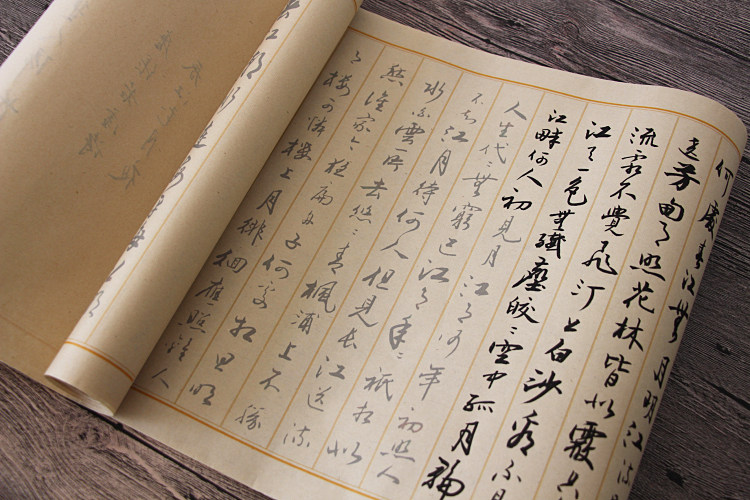 何處春江無月明江流
遶芳甸月照花林皆似霰空
流霜不覺飛汀上白沙看不見
江天一色無纖塵皎皎空中孤月輪
江畔何人初見月江月何年初照人
人生代代無窮已江月年年祗相似
不知江月待何人但見長江送流
水白雲一片去悠悠青楓浦上不勝
愁誰家今夜扁舟子何處相思明
月樓可憐樓上月徘徊應照離人